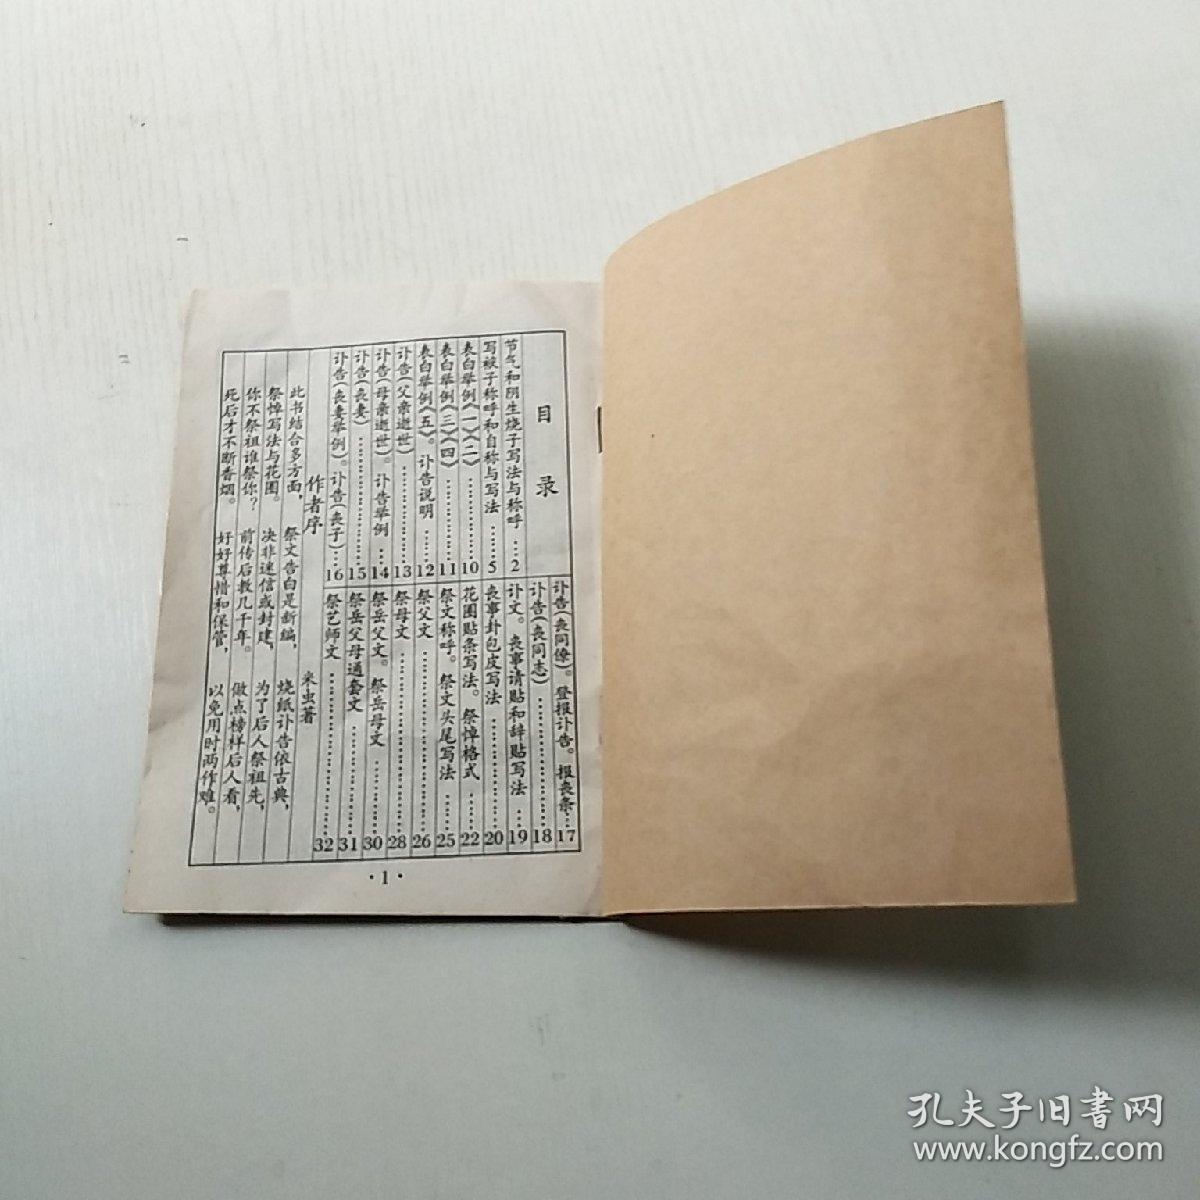 目录
节气和阴生烧子写法与称呼…2
写被子称呼和自称与写法……5
表白举例《一》《二》…………10
表白举例《三》《四》…………11
表白举例《五》。讣告说明……12
讣告(父亲逝世)………………13
讣告(母亲逝世)。讣告举例…14
讣告(丧妻)……………………15
讣告(丧妻举例)。讣告(丧子)…16
讣告(丧同僚)。登报讣告。报丧条…17
讣告(丧同志)…………………18
讣文。丧事请贴和辞贴写法…19
丧事卦包皮写法………………20
花圈贴条写法。祭悼格式……22
祭文称呼。祭文头尾写法……25
祭父文…………………………26
祭母文…………………………28
祭岳父文。祭岳母文…………30
祭岳父母通套文………………31
祭艺师文………………………32
作者序
米虫著
此书结合多方面,祭文告白是新编,烧纸讣告依古典,
祭悼写法与花圈。决非迷信或封建,为了后人祭祖先,
你不祭祖谁祭你?前传后教几千年。做点榜样后人看,
死后才不断香烟。好好尊惜和保管,以免用时两作难。
·1·
孔夫子旧书网
www.kongfz.com